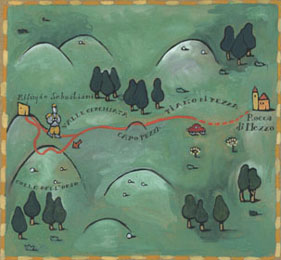 Rifugio Sebastiani
VALLE CERCHIATA
CAPO PEZZA
PIANO DI PEZZA
Rocca
di Mezzo
COLLE DELL'ORSO